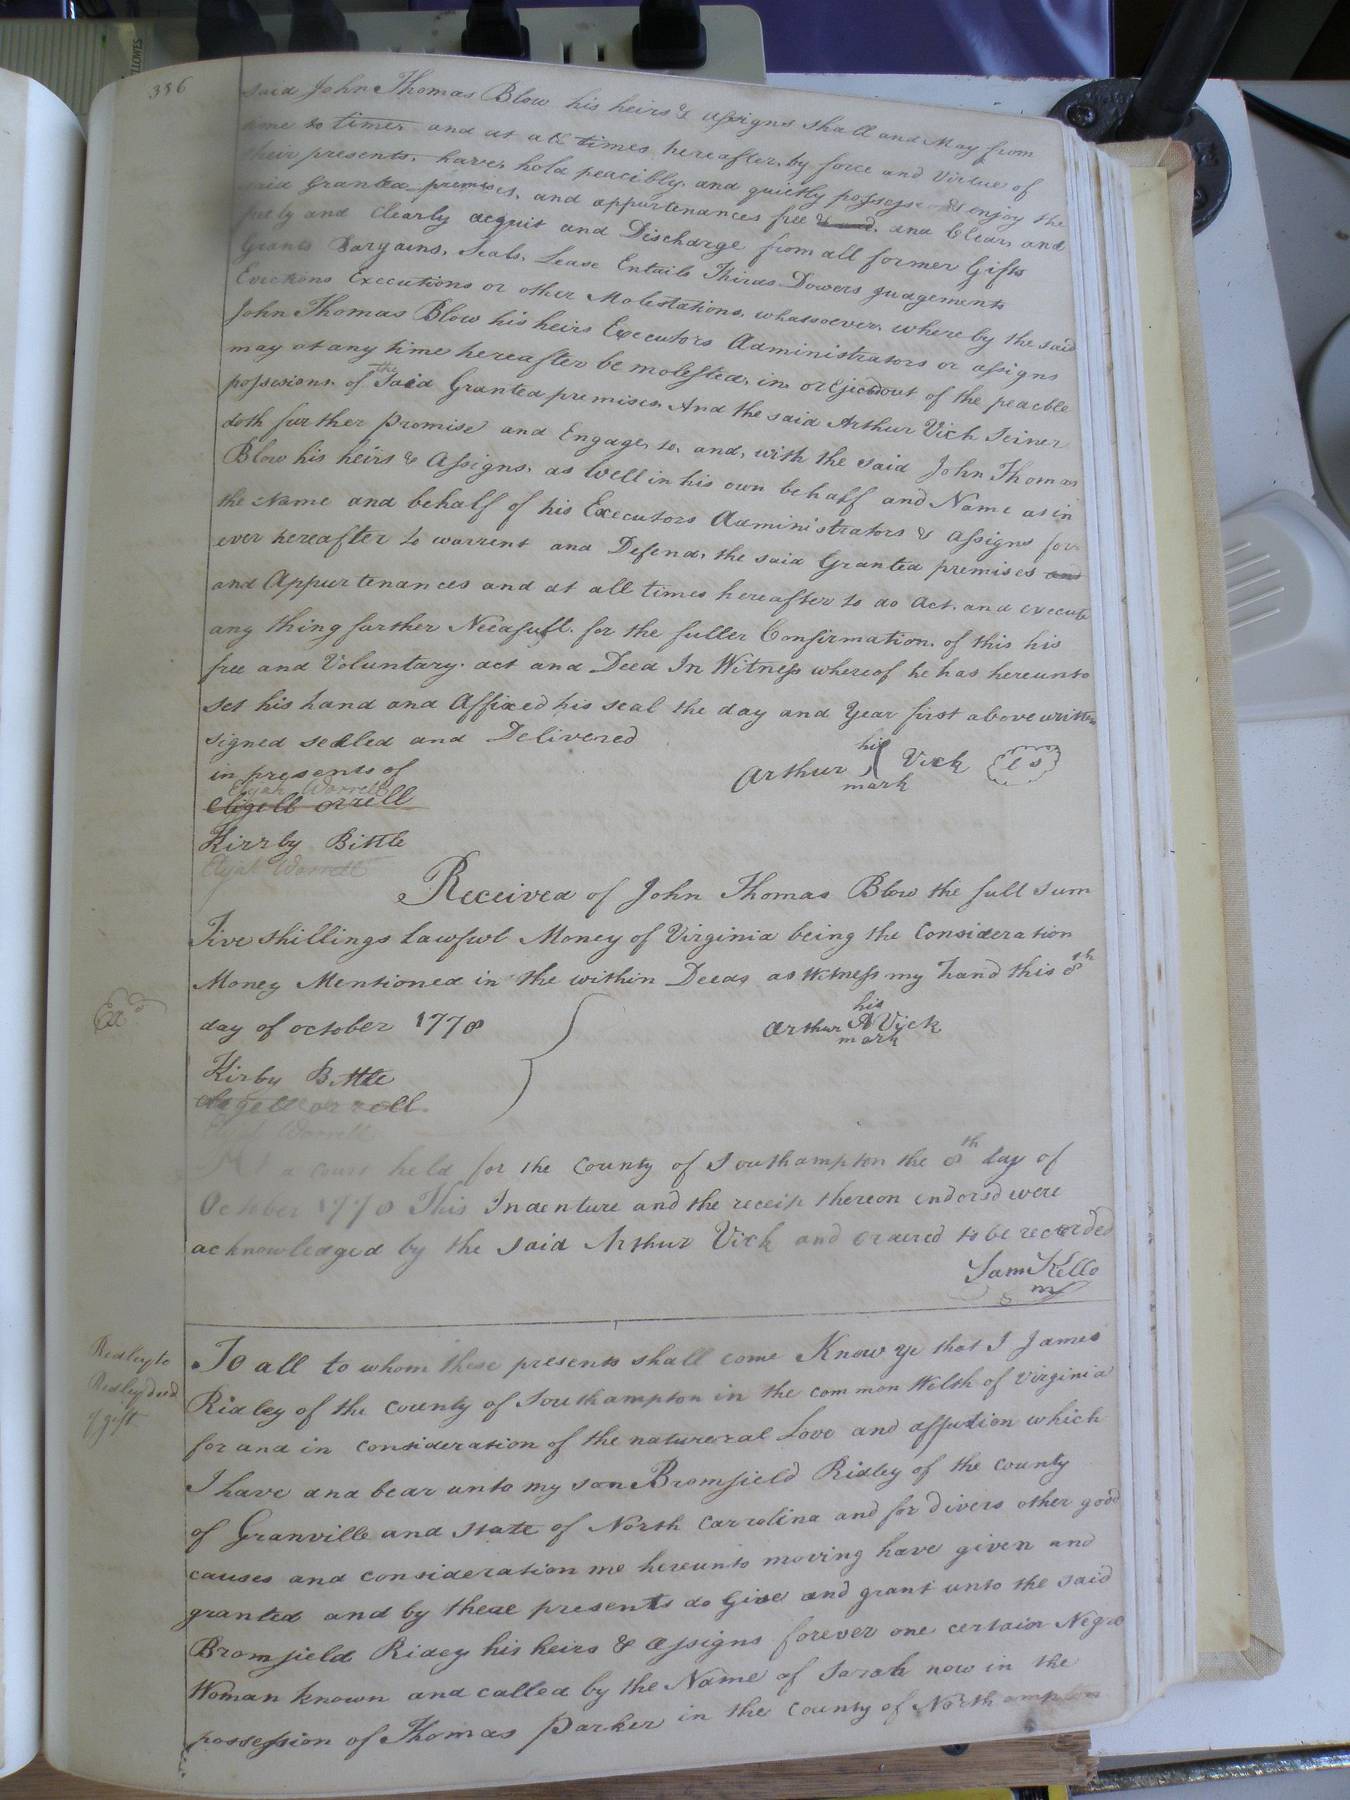 336
said John Thomas Blow his heirs & assigns shall and May from
time to times and at all times hereafter by force and Virtue of
their presents. have, hold peacibly and quietly possess and enjoy the
said granted premises, and appurtenances free & and. and Clear, and
freely and Clearly acquit and Discharge from all former Gifts
Grants Bargains, Seals, Lease Entails Thirds Dowers Judgements
Evictions Executions or other Molestations, whatsoever, where by the said
John Thomas Blow his heirs Executors Administrators or assigns
may at any time hereafter be molested, in, or Ejected out of the peacble
possesions. of the Said Granted premises. And the said Arthur Vick Seiner
doth further Promise and Engage, to, and, with the said John Thomas
Blow his heirs & Assigns, as Well in his own behalf and Name as in
the Name and behalf of his Executors Administrators & Assigns for
ever hereafter to warrent and Defend, the said Granted premises and
and Appurtenances and at all times hereafter to do Act. and execute
any thing further Necasull. for the fuller Confirmation. of this his
free and Voluntary. act and Deed In Witness whereof he has hereunto
set his hand and Affixed his seal the day and Year first above written
signed sealed and Delivered
in presents of
his
Arthur Vick LS
mark
Elijah Worrell
Kirrby Bittle
Elijah Worrell
Received of John Thomas Blow the full sum
Five shillings Lawfwl Money of Virginia being the Consideration
Money Mentioned in the within Deeds as Witness my hand this 8th
Exd
day of october 1778
his
Arthur A Vick
mark
Kirby Bittle
Elijah Worrell
At a Court held for the County of Southampton the 8th day of
October 1778 This Indenture and the receit thereon endorsd were
acknowledged by the said Arthur Vick and ordered to be recorded
Sam Kello
Ridley to
Ridley deed
of gift
To all to whom these presents shall come Know ye that I James
Ridley of the County of Southampton in the common Welth of Virginia
for and in consideration of the natureral Love and affection which
I have and bear unto my son Bromfield Ridley of the county
of Granville and State of North Carrolina and for divers other good
causes and consideration me hereunto moving have given and
granted and by these presents do Give and grant unto the said
Bromfield Ridey his heirs & Assigns forever one certain Negro
Woman known and called by the Name of Sarah now in the
possession of Thomas Parker in the County of Northampton